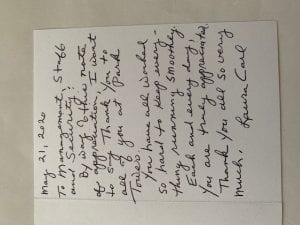 May 21, 2020
To Management, Staff
and Security:
By way of this note
of appreciation I want
to say Thank You to
all of you at Park
Towers
You have all worked
so hard to keep every-
thing running smoothly.
Each and every day,
you are truly appreciated.
Thank you all so very
much.
Laura Carl